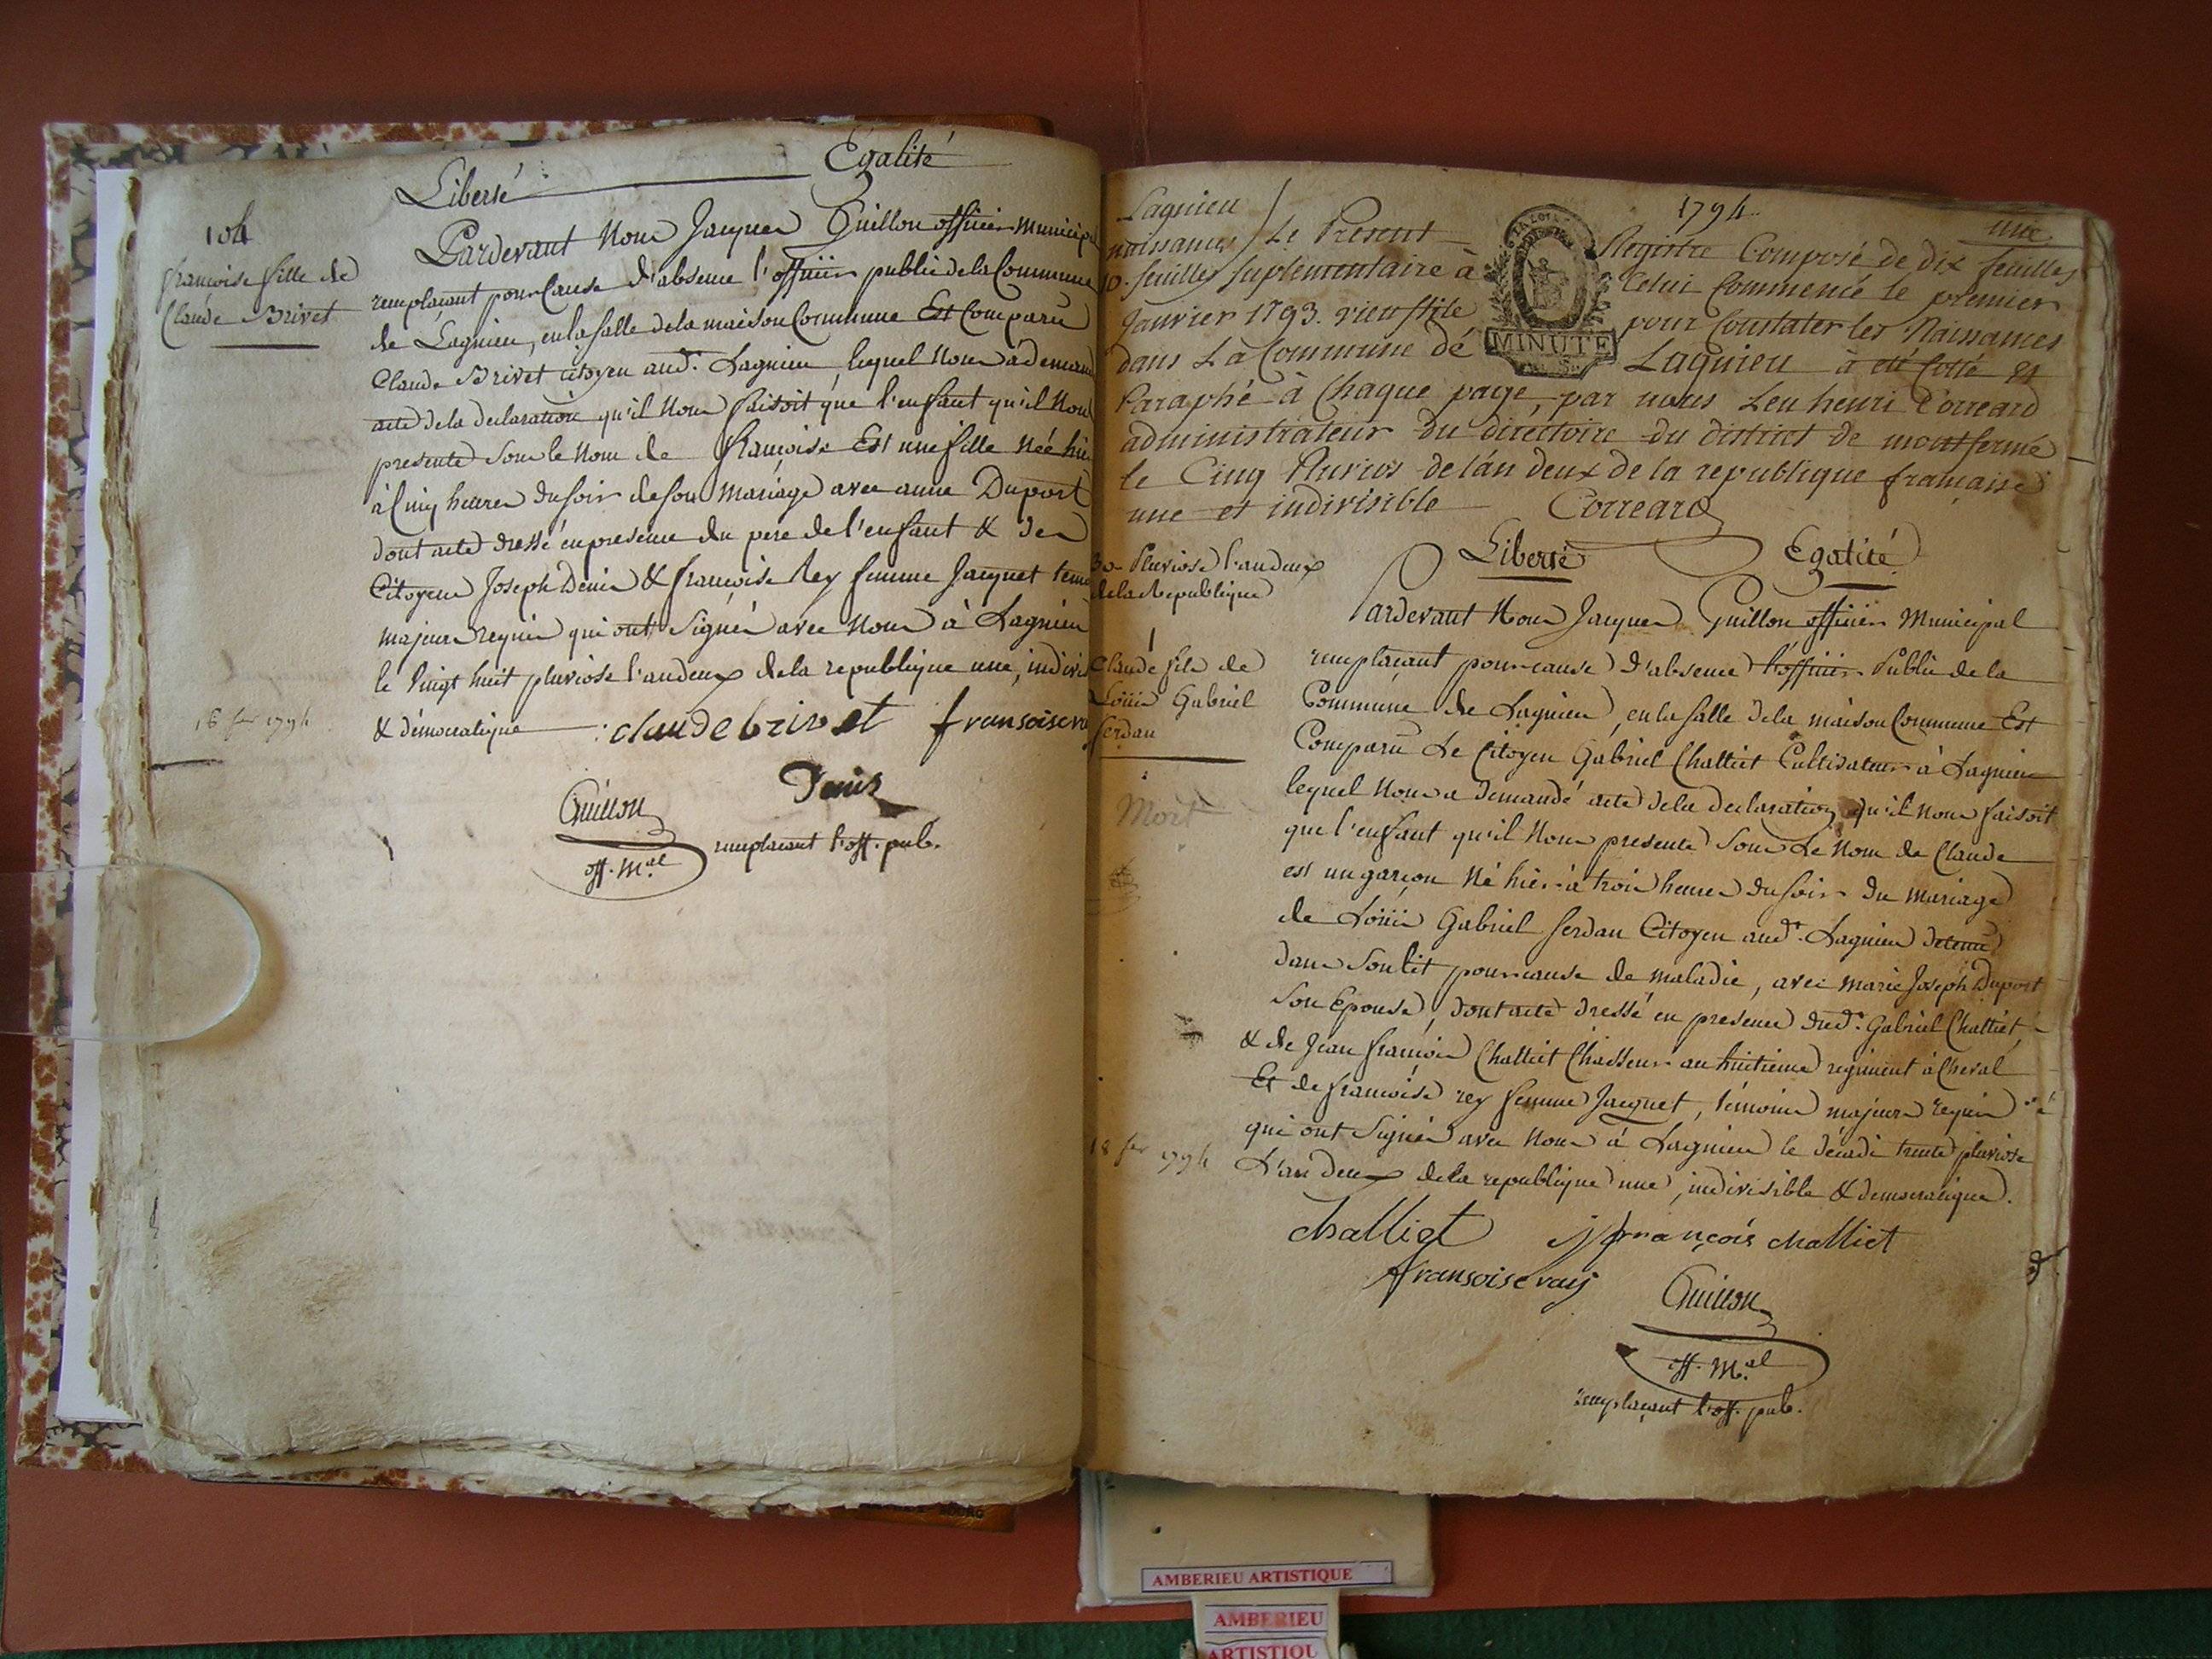 Liberté Egalité
104
francoise fille de
Claude Brivet
Pardevant Nous Jacques Guillon officier Municip
remplaçant pour Cause d'absence l'officier public de la Commune
de Lagnieu, en la salle de la maison Commune Est Comparu
Claude Brivet citoyen aud.t Lagnieu lequel Nous a demand
acte de la declaration qu'il Nous faisoit que l'enfant qu'il Nou
presente sous le Nom de françoise Est une fille Née hie
à Cinq heures du soir de son Mariage avec anne Duport
dont acte dressé en presence du pere de l'enfant & des
Citoyens Joseph Denis & françoise Rey femme Jacquet temo
majeurs requis qui ont signés avec Nous à Lagnieu
le vingt huit pluviose l'an deux de la republique une, indivis
& démocratique claude brivet fransoise ra
16 fer 1794
Denis
Guillon
off. M.al remplacant l'off. pub.
1794
une
Lagnieu
naissances / Le Present Registre Composé de dix feuilles
10 feuilles suplementaire à Celui Commencé le premier
Janvier 1793. vieux stile pour Constater les Naissances
MINUTE
dans La Commune de Lagnieu à eté Cotté et
Paraphé à Chaque page, par nous Leu henri Correard
administrateur du directoire du district de montfermé
le Cinq Pluvios de l'an deux de la republique francaise
une et indivisible Correard
Liberté Egalité
30 Pluviose l'an deux
de la Republique
1
Claude fils de
Loüis Gabriel
ferdan
Mort
Pardevant Nous Jacques Guillon officier Municipal
remplaçant pour cause d'absence l'officier Public de la
Commune de Lagnieu, en la salle de la maison Commune Est
Comparu Le Citoyen Gabriel Challiet Cultivateur à Lagnieu
lequel Nous a demandé acte de la declaration qu'il nous faisoit
que l'enfant qu'il Nous presente sous Le Nom de Claude
est un garçon Né hier à trois heures du soir du mariage
de Loüis Gabriel ferdan Citoyen aud.t Lagnieu detenu
dans son lit pour cause de maladie, avec marie Joseph Duport
son Epouse, dont acte dressé en presence dud.t Gabriel Challiet,
& de Jean françois Challiet Chasseur au huitieme regiment à Cheval
Et de françoise rey femme Jacquet, témoins majeurs requis
qui ont signés avec Nous à Lagnieu le décadi trente pluviose
L'an deux de la republique une, indivisible & democratique.
18 fer 1794
challiet j françois challiet
fransoise raiy Guillon
off. M.al
remplaçant l'off. pub.
AMBERIEU ARTISTIQUE
AMBERIEU
ARTISTIQU